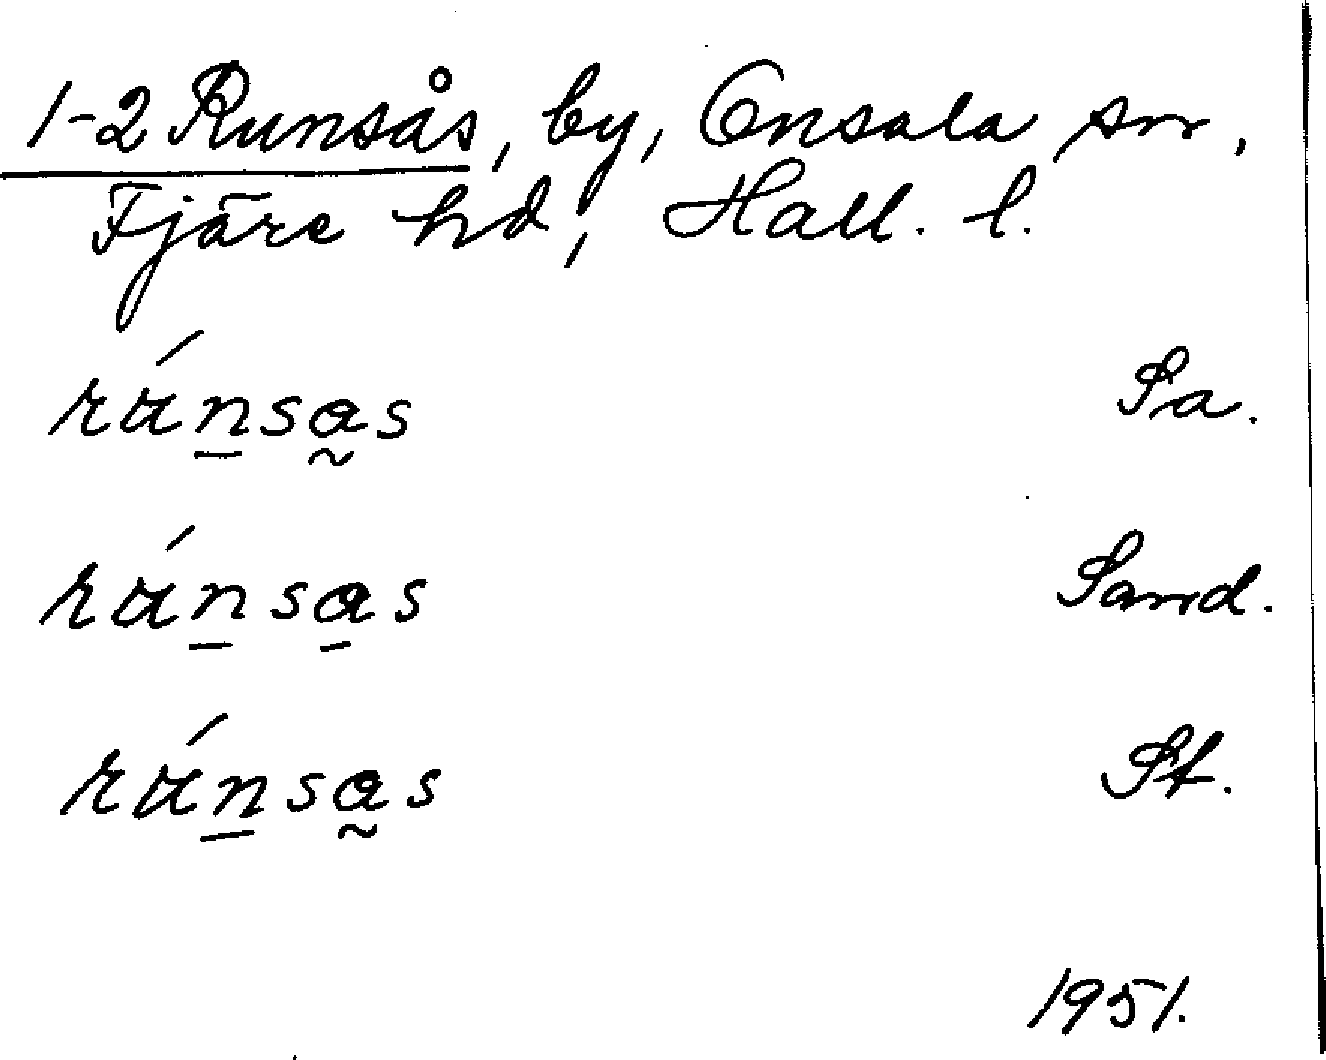 1-2 Runsås, by, Onsala sn,
Fjäre hd, Hall. l.
rúnsas Sa.
rúnsas Sand.
rúnsas St.
1951.